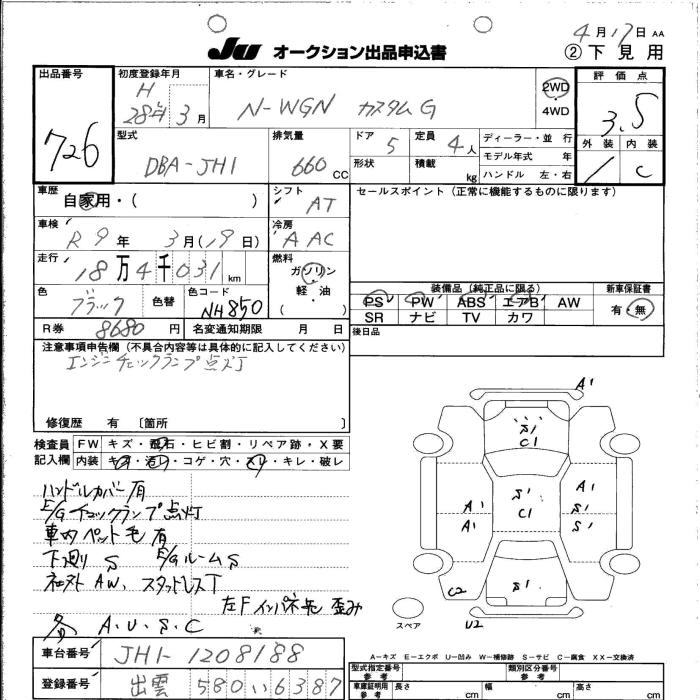 4月17日 AA
JU オークション出品申込書 ②下見用
出品番号 726
初度登録年月 H28年3月
車名・グレード N-WGN カスタム G
2WD・4WD
評価点 3.5
外装 1 内装 C
型式 DBA-JH1
排気量 660 CC
ドア 5 定員 4人
形状 積載 kg
ディーラー・並行
モデル年式 年
ハンドル 左・右
車歴 自家用・( )
シフト AT
セールスポイント(正常に機能するものに限ります)
車検 R9年3月(19日)
冷房 AAC
走行 18万4千031km
燃料 ガソリン・軽油・( )
色 ブラック 色替
色コード NH850
装備品(純正品に限る) 新車保証書
PS PW ABS エアB AW 有・無
SR ナビ TV カワ
R券 8680円 名変通知期限 月 日
後日品
注意事項申告欄(不具合内容等は具体的に記入してください)
エンジンチェックランプ点灯
修復歴 有 〔箇所 〕
検査員記入欄
FW キズ・飛石・ヒビ割・リペア跡・X要
内装 キズ・汚レ・コゲ・穴・スリ・キレ・破レ
ハンドルカバー有
E/Gチェックランプ点灯
車内ペット毛有
下廻りS E/GルームS
社外AW、スタッドレスT
左Fインパネ先歪み
各A.U.S.C
A1
S1
C1
A1 S1 A1
A1 C1 S1
S1
C2 S1
U2
スペア
A-キズ E-エクボ U-凹み W-補修跡 S-サビ C-腐食 XX-交換済
車台番号 JH1-1208188
登録番号 出雲 580 い 6387
型式指定番号 参考
類別区分番号 参考
車庫証明用参考 長さ cm 幅 cm 高さ cm